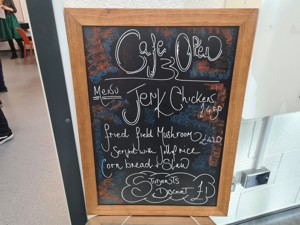 Cafe Open
Menu
Jerk Chickens
£4.50
fried field Mushroom
Served with rice
Corn bread & Slaw
Students
Discount £1